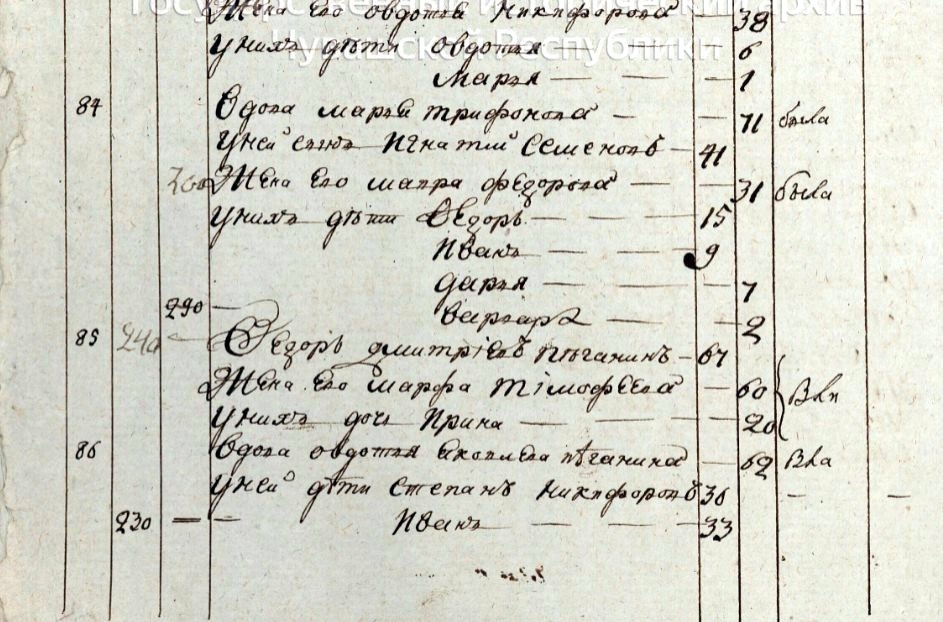 Государственный исторический архив
Чувашской Республики
Жена его овдотья Никифорова — 38
У нихъ дѣти овдотья 6
Марья — — — 1
84 Вдова марья трифонова — — 71 была
У ней сынъ Игнатий Семеновъ — 41
Жена его мавра федорова — — 31 была
У нихъ дѣти Ѳедоръ — — — 15
Иванъ — — — 9
дарья — — — 7
290 — варвара — — 2
85 240 — Ѳедоръ дмитріевъ пѣганинъ — 67
Жена его марфа тімофеева — 60 } Вли
У нихъ дочь Ирина — — — 20
86 Вдова овдотья яковлева пѣганина — 62 Вла
У ней дѣти Степанъ Никифоровъ 36 — —
230 — — Иванъ — — — 33